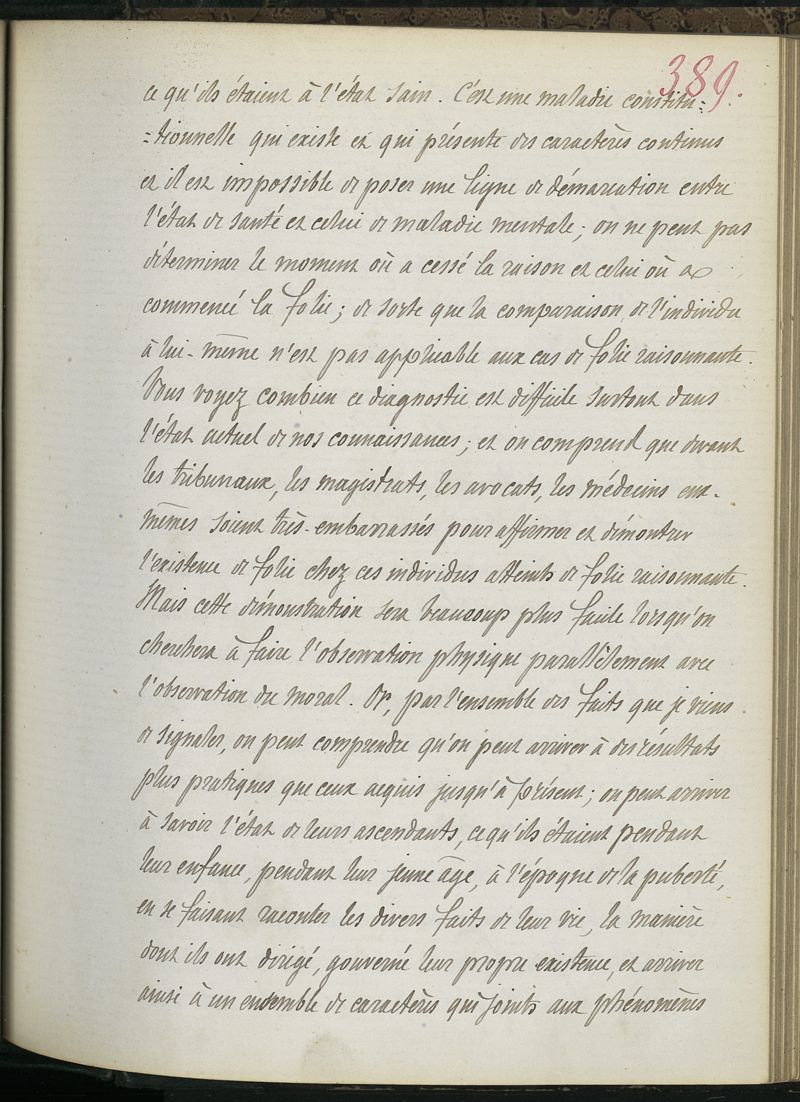 389.
ce qu'ils étaient à l'état sain. C'est une maladie constitu-
-tionnelle qui existe et qui présente des caractères continus
et il est impossible de poser une ligne de démarcation entre
l'état de santé et celui de maladie mentale ; on ne peut pas
déterminer le moment où a cessé la raison et celui où a
commencé la folie ; de sorte que la comparaison de l'individu
à lui-même n'est pas applicable aux cas de folie raisonnante.
Vous voyez combien ce diagnostic est difficile surtout dans
l'état actuel de nos connaissances, et on comprend que devant
les tribunaux, les magistrats, les avocats, les médecins eux-
mêmes soient très-embarrassés pour affirmer et démontrer
l'existence de folie chez ces individus atteints de folie raisonnante.
Mais cette démonstration sera beaucoup plus facile lorsqu'on
cherchera à faire l'observation physique parallèlement avec
l'observation du moral. Or, par l'ensemble des faits que je viens
de signaler, on peut comprendre qu'on peut arriver à des résultats
plus pratiques que ceux acquis jusqu'à présent ; on peut arriver
à savoir l'état de leurs ascendants, ce qu'ils étaient pendant
leur enfance, pendant leur jeune âge, à l'époque de la puberté,
en se faisant raconter les divers faits de leur vie, la manière
dont ils ont dirigé, gouverné leur propre existence, et arriver
ainsi à un ensemble de caractères qui joints aux phénomènes